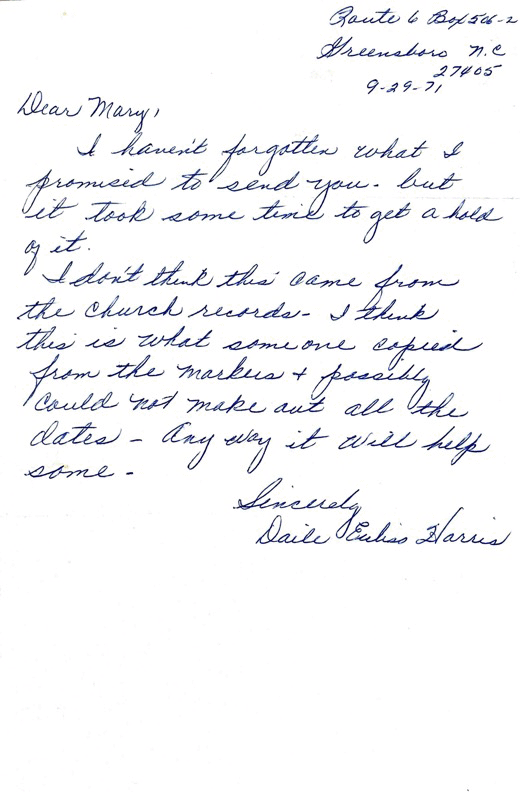 Route 6 Box 566-2
Greensboro N.C
27405
9-29-71
Dear Mary,
I haven't forgotten what I
promised to send you - but
it took some time to get a hold
of it.
I don't think this came from
the church records - I think
this is what someone copied
from the markers + possibly
could not make out all the
dates - Any way it will help
some -
Sincerely
Daile Euliss Harris